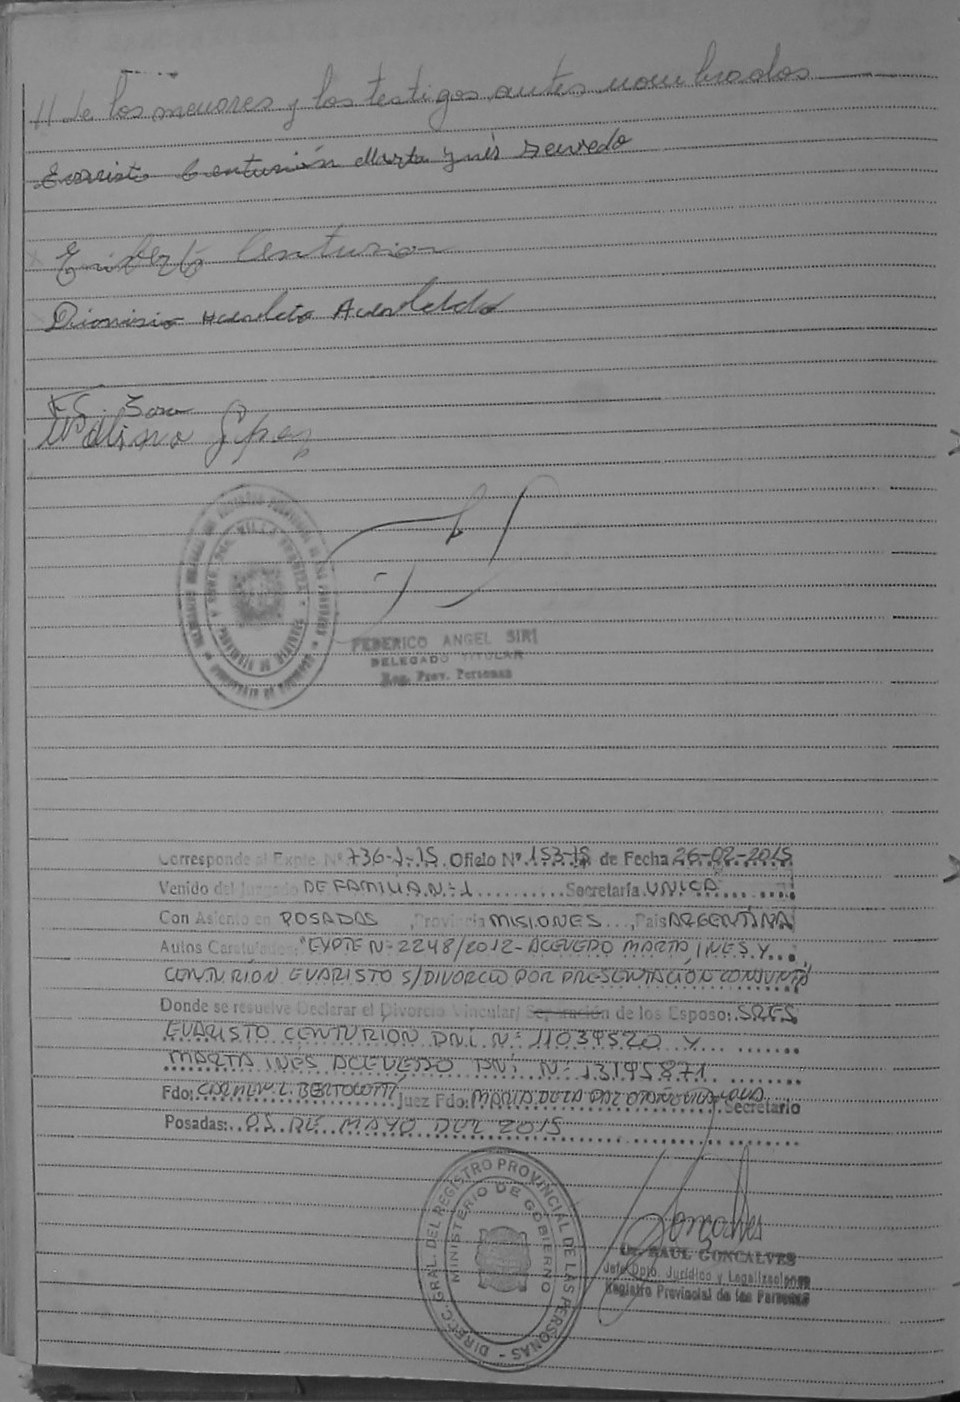 // de los menores y los testigos antes nombrados
Evaristo Centurión Marta Inés Acevedo
Eriberto Centurion
Dionisio Acevedo
FEDERICO ANGEL SIRI
DELEGADO TITULAR
Reg. Prov. Personas
Corresponde al Expte. Nº 736-J-15. Oficio Nº 153-15 de Fecha 26-02-2015
Venido del Juzgado DE FAMILIA N:1 Secretaría UNICA
Con Asiento en POSADAS, Provincia MISIONES, País ARGENTINA
Autos Caratulados: "EXPTE N: 2248/2012- ACEVEDO MARTA INES Y
CENTURIÓN EVARISTO S/DIVORCIO POR PRESENTACIÓN CONJUNTA"
Donde se resuelve Declarar el Divorcio Vincular/ Separación de los Esposo: SRES
EVARISTO CENTURION DNI. N: 11039520 Y
MARTA INES ACEVEDO DNI N: 13195871
Fdo: CARMEN L. BERTOLOTTI Juez Fdo: MARIA Secretario
Posadas: 05 DE MAYO DEL 2015
DIREC. GRAL. DEL REGISTRO PROVINCIAL DE LAS PERSONAS
MINISTERIO DE GOBIERNO
Goncalves
Dr. RAUL GONCALVES
Jefe Dpto. Jurídico y Legalizaciones
Registro Provincial de las Personas